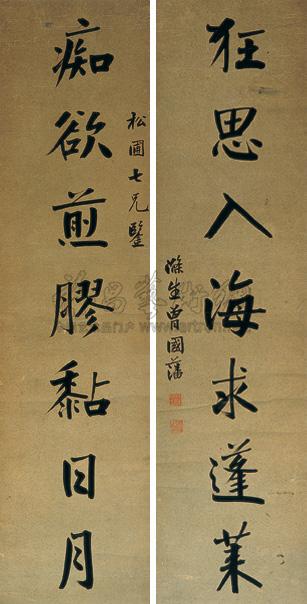 狂思入海求蓬莱
滌生曾國藩
松圃七兄鑒
痴欲煎膠黏日月